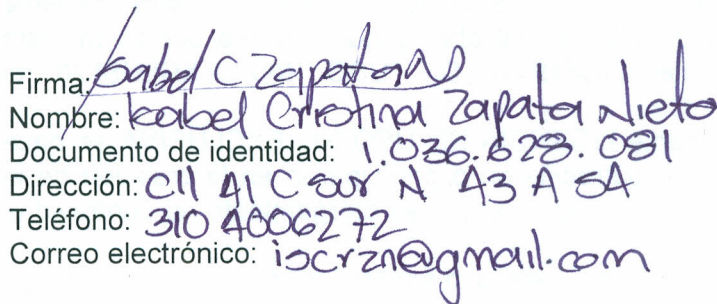 Firma: Isabel C Zapata N
Nombre: Isabel Cristina Zapata Nieto
Documento de identidad: 1.036.628.081
Dirección: Cll 41 C sur N 43 A 54
Teléfono: 310 4006272
Correo electrónico: iscrzn@gmail.com